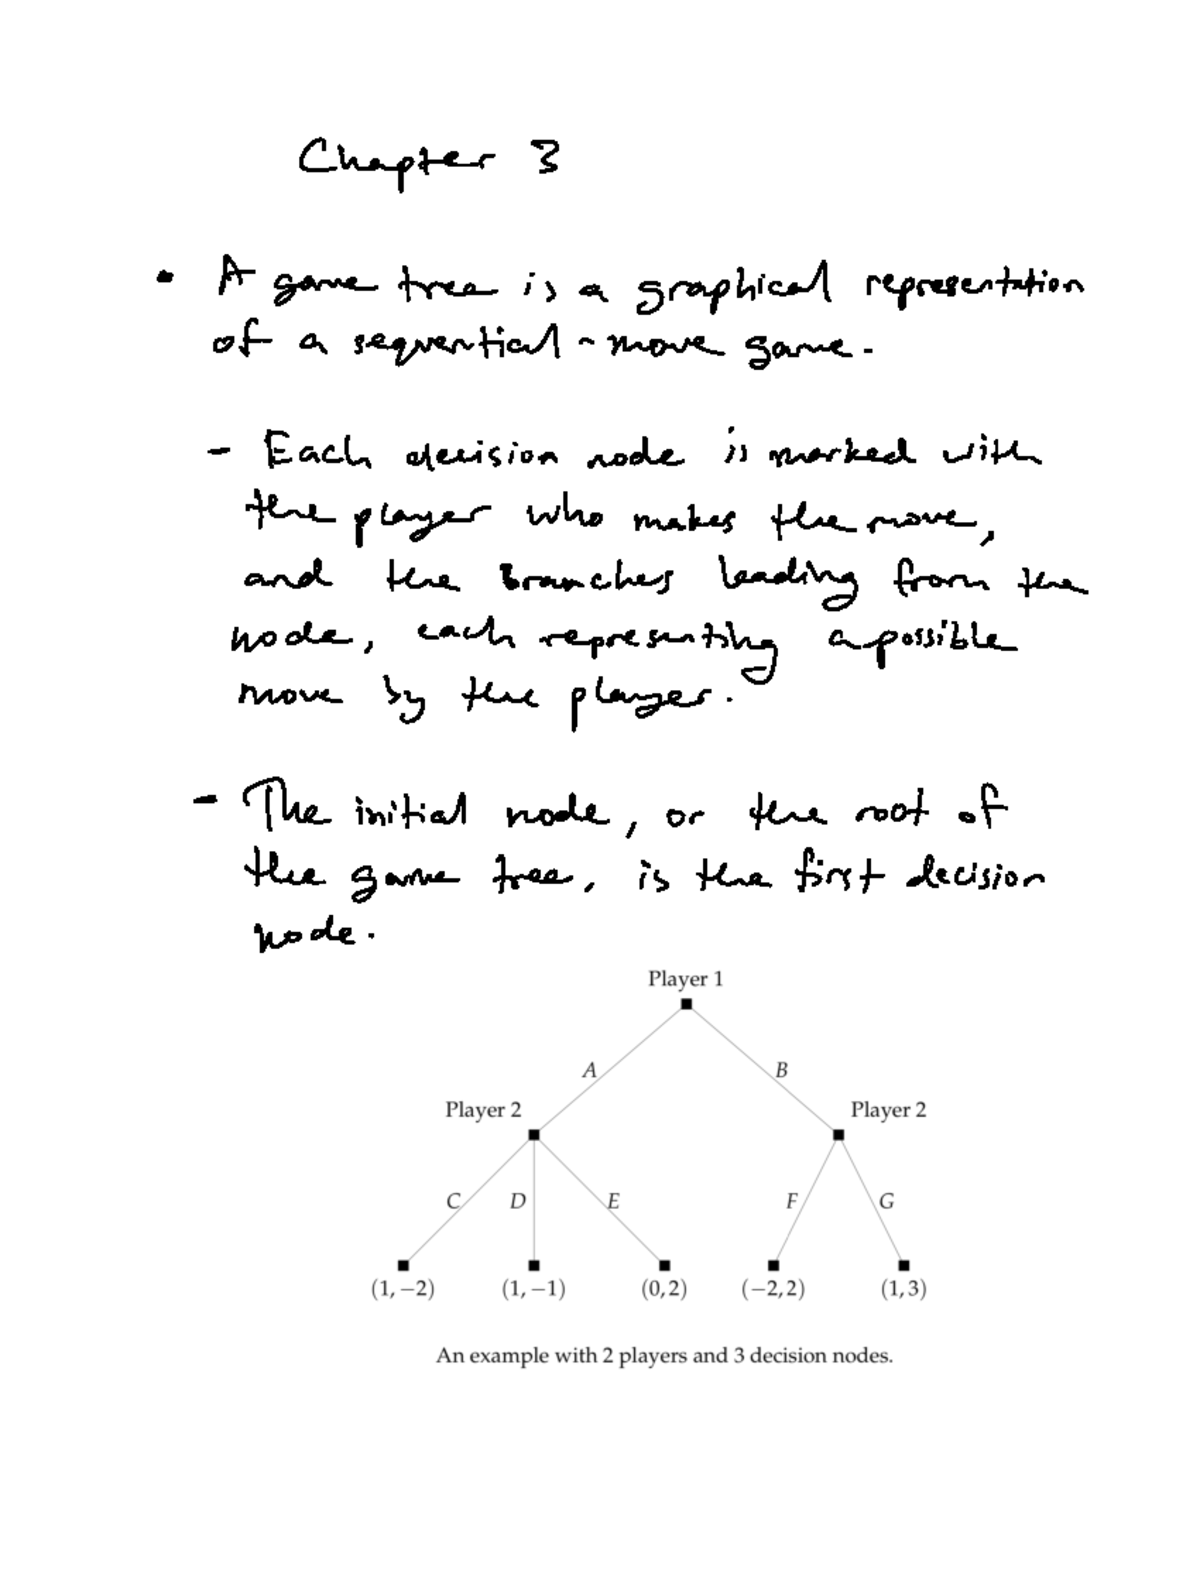 Chapter 3
• A game tree is a graphical representation
of a sequential-move game.
- Each decision node is marked with
the player who makes the move,
and the branches leading from the
node, each representing a possible
move by the player.
- The initial node, or the root of
the game tree, is the first decision
node.
Player 1
A B
Player 2 Player 2
C D E F G
(1, −2) (1, −1) (0, 2) (−2, 2) (1, 3)
An example with 2 players and 3 decision nodes.